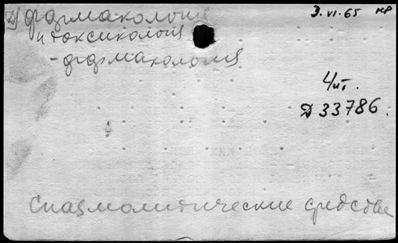 фармакология
и токсикология
- фармакология
3.VI.65 кр
4/ит.
Д 33786.
Спазмолитические средства